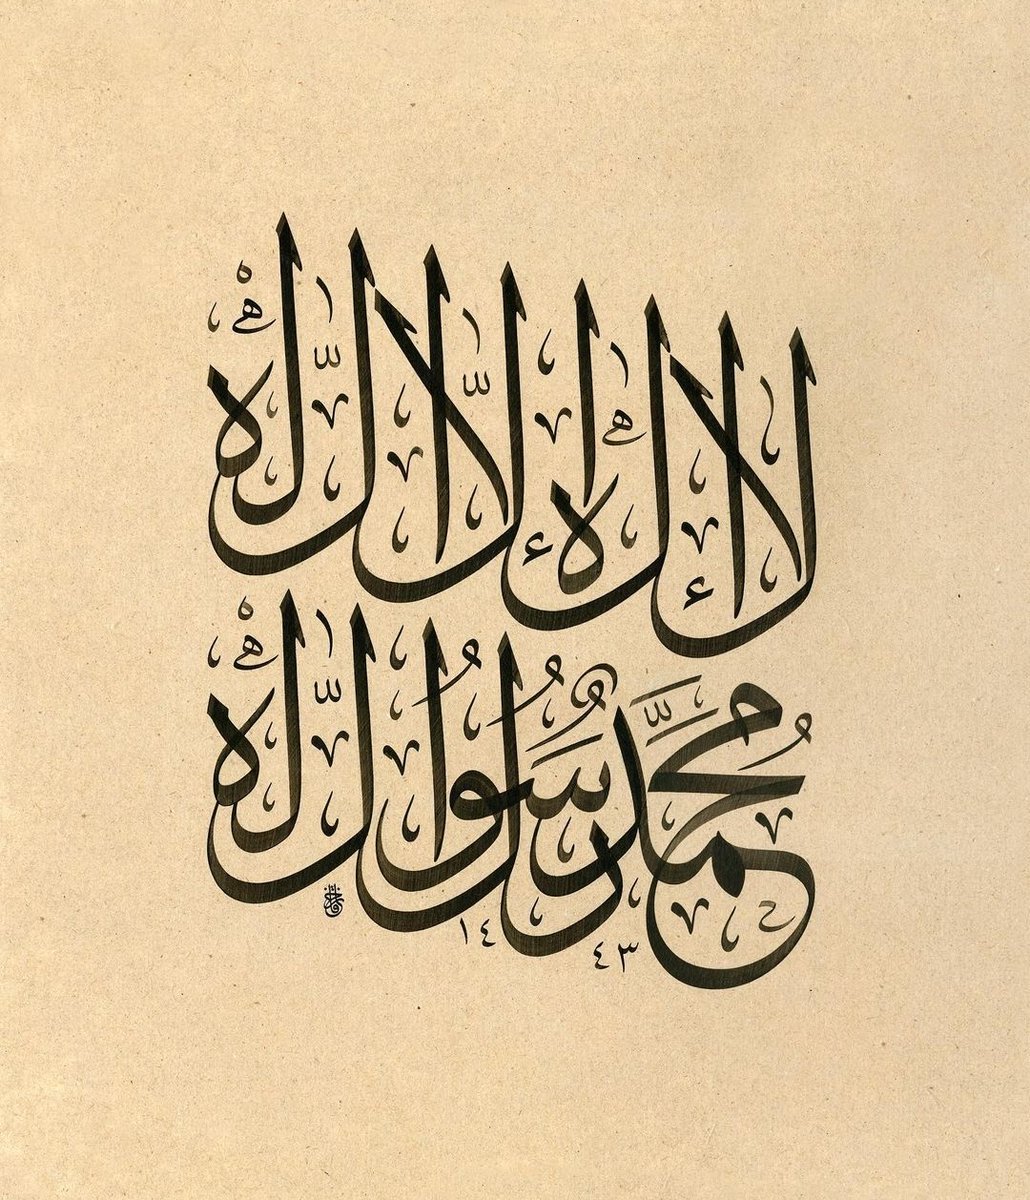 لا إله إلا الله
محمد رسول الله
١٤٤٣